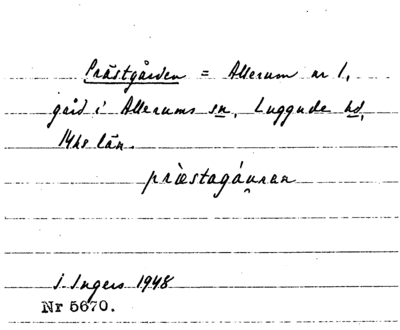 Prästgården = Allerum nr 1,
gård i Allerums sn, Luggude hd,
Mhs län.
prìestagáu̯ran
I. Ingers 1948
Nr 5670.